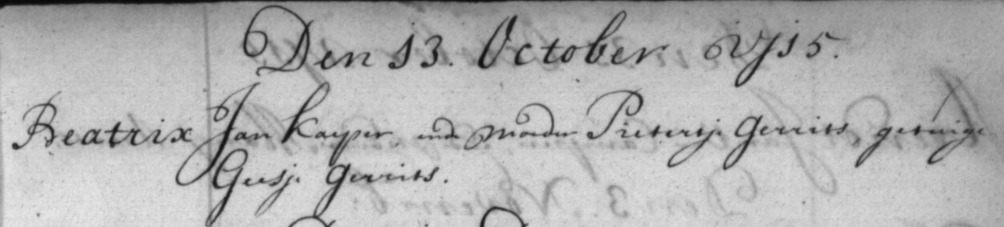 Den 13. October 1715.
Beatrix Jan Kayper ende moeder Pietertje Gerrits getuige
Geesje Gerrits.